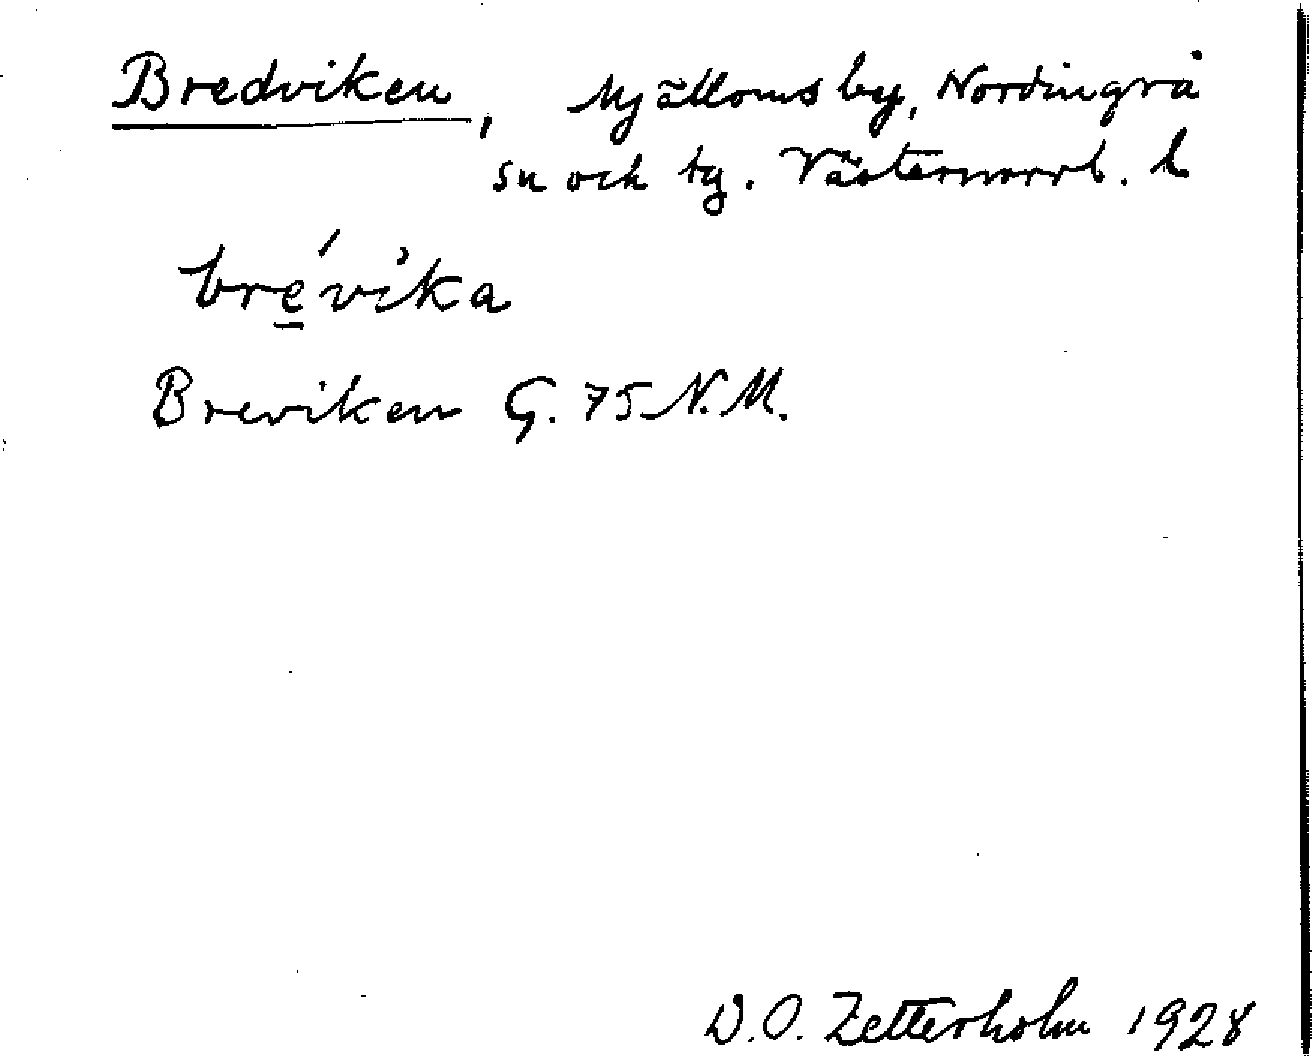 Bredviken, Mjälloms by, Nordingrå
sn och tg. Västernorrl. l
bre̱´vìka
Breviken G. 75 N.M.
D.O. Zetterholm 1928